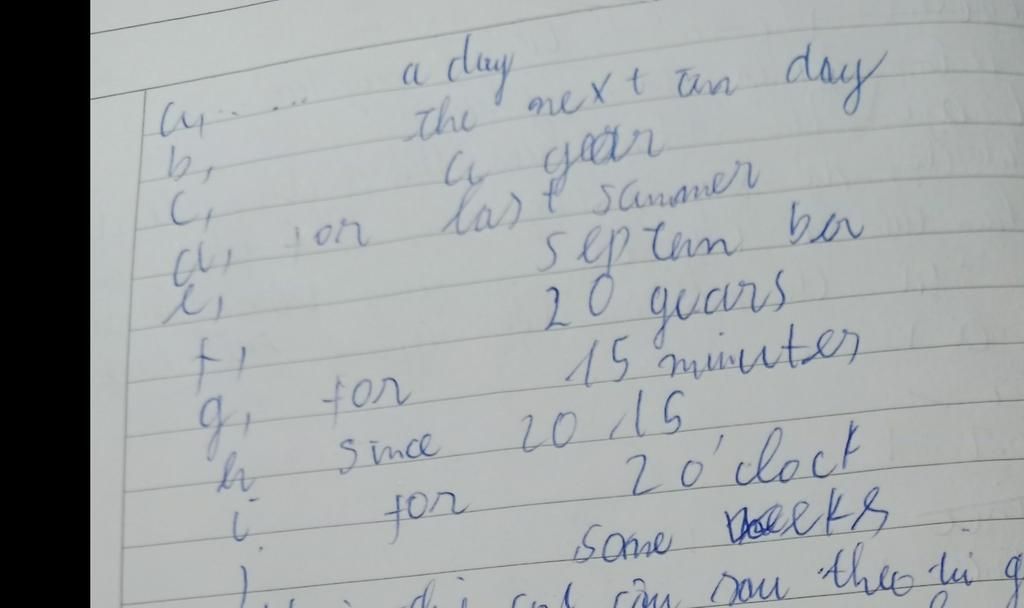 a, ..... ... a day
b, the next tan day
c, a year
d, for last summer
e, septem ber
f, 20 years
g, for 15 minutes
h since 20 15
i for 2 o'clock
j some weeks
sau theo